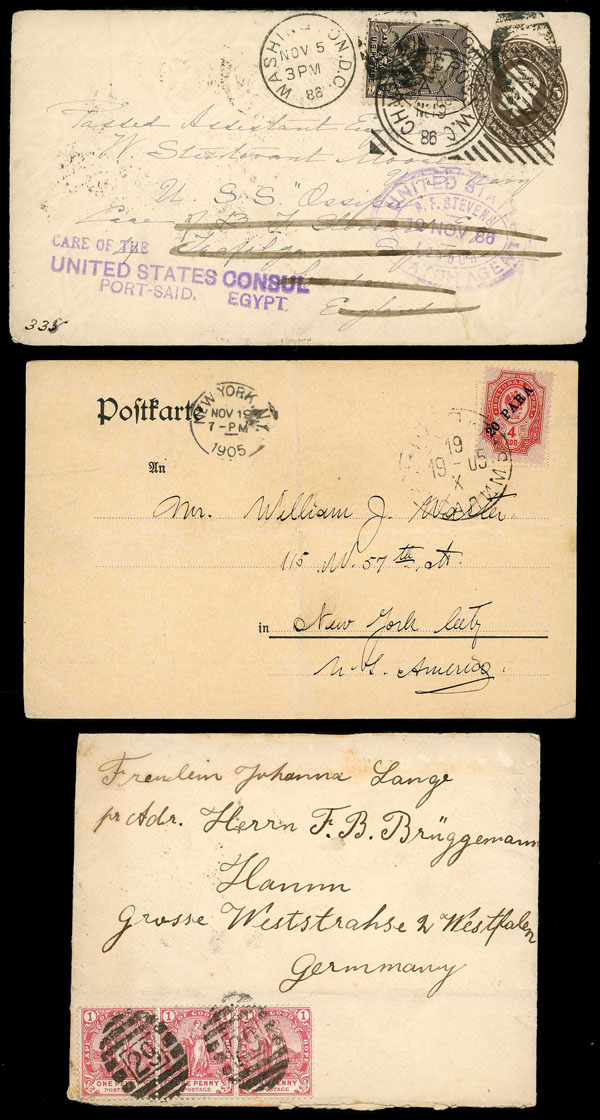 WASHINGTON, D.C.
NOV 5
3 PM
86
CHARING CROSS W.C.
NO 19
86
Passed Assistant
W. Sturtevant Moore
U.S. Navy
U. S. S. "Ossipee"
Care B. F. Stevens
4 Trafalgar
London
England
UNITED STATES
B. F. STEVENS
19 NOV 86
CARE OF THE
UNITED STATES CONSUL
PORT-SAID. EGYPT.
338
Postkarte
NEW YORK, N.Y.
NOV 19
7-PM
1905
20 PARA
4
КОП
19
19-05
X
An
Mr. William J.
115 W. 57th St.
in New York City
U. S. America
Freulein Johanna Lange
pr Adr. Herrn F. B. Brüggemann
Hamm
Grosse Weststrahse 2 Westfalen
Germmany
1 CAPE OF GOOD HOPE 1
ONE PENNY
POSTAGE
PENNY
POSTAGE